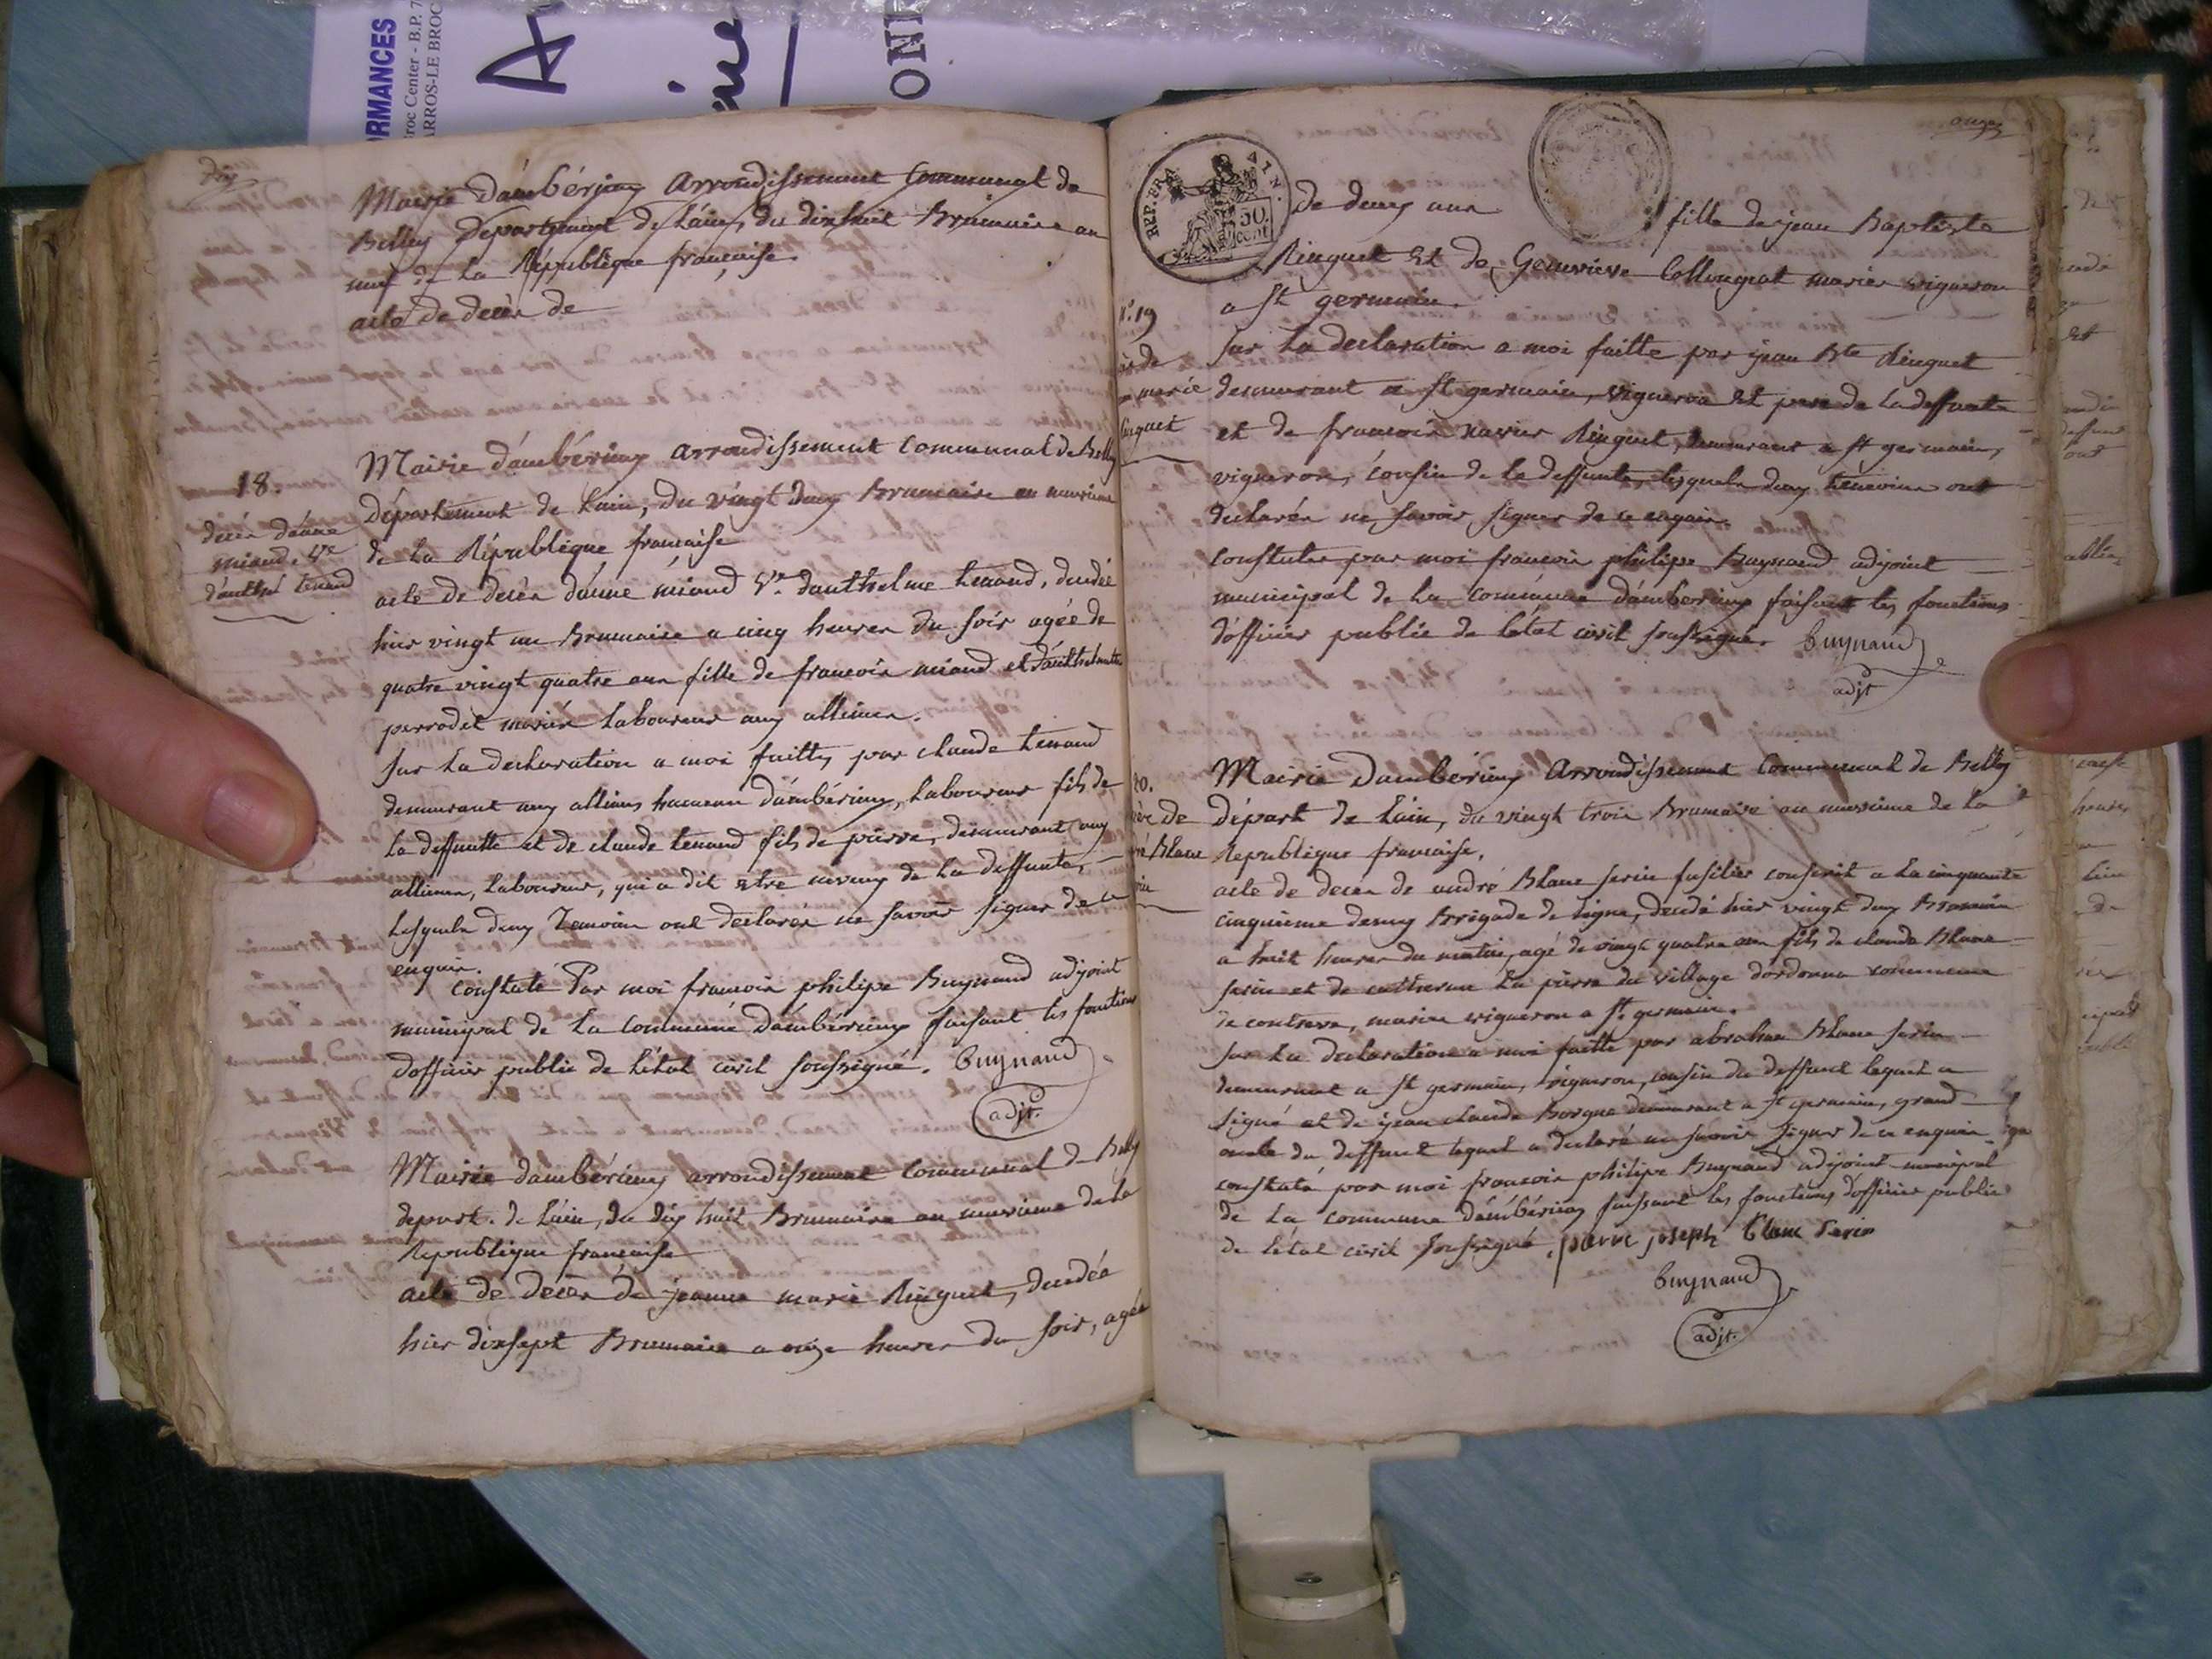 ORMANCES
roc Center - B.P. 7
ARROS-LE BROC
A
ine
ONF
dix
Mairie d'ambérieux arrondissement Communal de
Belley département de l'ain, du dixhuit Brumaire an
neuf de la République française.
acte de décès de
18.
décès d'anne
miand, Ve
d'anthel tenand
Mairie d'ambérieux arrondissement Communal de Belley
Département de l'ain, du vingt deux Brumaire an neuvieme
de la République française
acte de décès d'anne miand Ve d'anthelme tenand, décédée
hier vingt un Brumaire a cinq heures du soir agée de
quatre vingt quatre ans fille de francois miand et d'anthelmette
perrodet mariés laboureur aux allimes.
sur la declaration a moi faitte, par claude tenand
demeurant aux allimes hameau d'ambérieux, laboureur fils de
la deffuntte et de claude tenand fils de pierre, demeurant aux
allimes, laboureur, qui a dit etre neveux de la deffunte,
lesquels deux temoins ont declarés ne savoir signer de ce
enquis.
constaté Par moi francois philipe Buynand adjoint
municipal de la Commune d'ambérieux faisant les fonctions
d'officier public de l'état civil soussigné. buynand
adjt.
Mairie d'ambérieux arrondissement Communal de Belley
depart. de l'ain, du dix huit Brumaire an neuvieme de la
Republique francaise
acte de décès de jeanne marie Ringuet, décedée
hier dixsept Brumaire a onze heures du soir, agée
onze
REP. FRA
50.
cent
de deux ans fille de jean Baptiste
Ringuet et de Genevieve Collongeat mariés vigneron
a St germain.
No. 19
ès de
marie
inguet
sur la declaration a moi faitte par jean Bte Ringuet
demeurant a St germain, vigneron et pere de la deffunte
et de francois xavier Ringuet, demeurant a St germain,
vigneron, cousin de la deffunte, lesquels deux témoins ont
declarés ne savoir signer de ce enquis.
constaté par moi francois philipe Buynand adjoint
municipal de la commune d'ambérieux faisant les fonctions
d'officier public de l'etat civil soussigné. buynand
adjt
20.
cès de
ré Blanc
rin
Mairie d'ambérieux arrondissement Communal de Belley
départ de l'ain, du vingt trois Brumaire an neuvieme de la
Republique francaise.
acte de deces de andré Blanc serin fusilier conscrit a la cinquante
cinquieme demy Brigade de ligne, decédé hier vingt deux Brumaire
a huit heures du matin, agé de vingt quatre ans fils de claude Blanc
serin et de catherine la pierre du village dordonna commune
de contrevo, mariés vigneron a St. germain.
sur la declaration a moi faitte par abraham Blanc serin
demeurant a St germain, vigneron, cousin du deffunt lequel a
signé et de jean claude Borgue demeurant a St germain, grand
oncle du deffunt lequel a declaré ne savoir signer de ce enquis
constaté par moi francois philipe Buynand adjoint municipal
de la commune d'ambérieux faisant les fonctions d'officier public
de l'état civil soussigné. pierre joseph blanc serin
buynand
adjt.